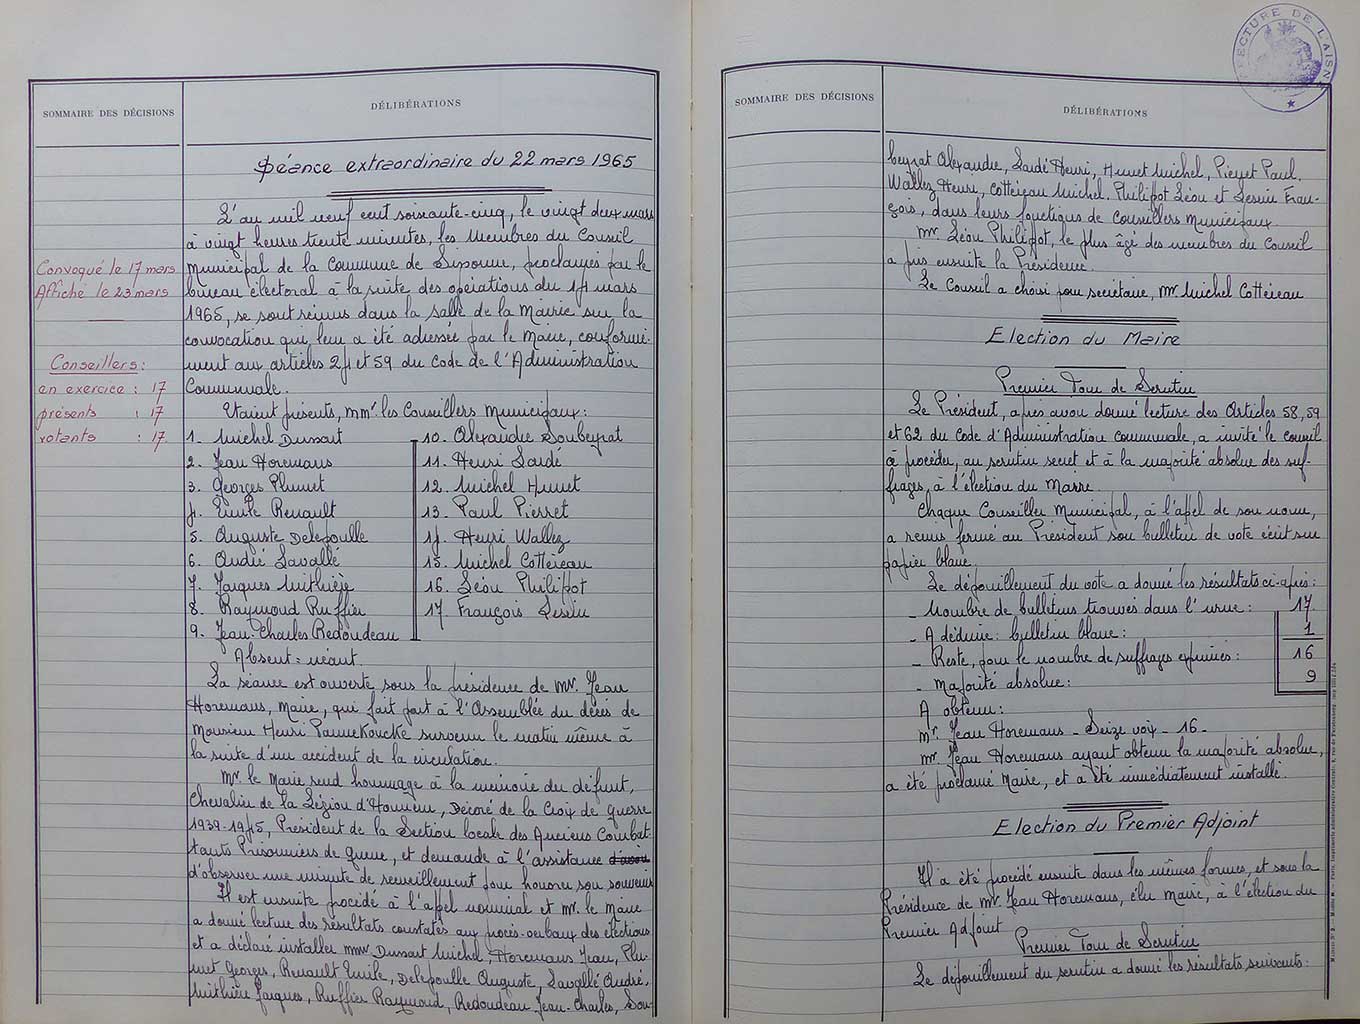 SOMMAIRE DES DÉCISIONS
DÉLIBÉRATIONS
Séance extraordinaire du 22 mars 1965
L'an mil neuf cent soixante-cinq, le vingt deux mars
à vingt heures trente minutes, les Membres du Conseil
Municipal de la Commune de Sissonne, proclamés par le
bureau électoral à la suite des opérations du 14 mars
1965, se sont réunis dans la salle de la Mairie sur la
convocation qui leur a été adressée par le Maire, conformé-
ment aux articles 24 et 59 du Code de l'Administration
Communale.
Convoqué le 17 mars
Affiché le 23 mars
Conseillers :
en exercice : 17
présents : 17
votants : 17
Etaient présents, MMrs les Conseillers Municipaux :
1. Michel Dussart
2. Jean Horemans
3. Georges Plumet
4. Emile Renault
5. Auguste Delepoulle
6. André Lavallé
7. Jacques Mithière
8. Raymond Ruffier
9. Jean-Charles Redoudeau
10. Alexandre Soubeyrat
11. Henri Lardé
12. Michel Huvet
13. Paul Pierret
14. Henri Wallez
15. Michel Cottereau
16. Léon Philippot
17. François Lesein
Absent = néant.
La séance est ouverte sous la présidence de Mr. Jean
Horemans, Maire, qui fait part à l'Assemblée du décès de
Monsieur Henri Pannekoucke survenu le matin même à
la suite d'un accident de la circulation.
Mr. le Maire rend hommage à la mémoire du défunt,
Chevalier de la Légion d'Honneur, Décoré de la Croix de Guerre
1939-1945, Président de la Section locale des Anciens Combat-
tants Prisonniers de guerre, et demande à l'assistance
d'observer une minute de recueillement pour honorer son souvenir
Il est ensuite procédé à l'apel nominal et Mr. le Maire
a donné lecture des résultats constatés aux procès-verbaux des élections
et a déclaré installer MMrs Dussart Michel, Horemans Jean, Plu-
met Georges, Renault Emile, Delepoulle Auguste, Lavallé André,
Mithière Jacques, Ruffier Raymond, Redoudeau Jean-Charles, Sou-
SOMMAIRE DES DÉCISIONS
DÉLIBÉRATIONS
beyrat Alexandre, Lardé Henri, Huvet Michel, Pierret Paul,
Wallez Henri, Cottereau Michel, Philippot Léon et Lesein Fran-
çois, dans leurs fonctions de Conseillers Municipaux.
Mr. Léon Philippot, le plus âgé des membres du Conseil
a pris ensuite la Présidence.
Le Conseil a choisi pour secrétaire, Mr. Michel Cottereau
Election du Maire
Premier Tour de Scrutin
Le Président, après avoir donné lecture des Articles 58, 59
et 62 du Code d'Administration communale, a invité le conseil
à procéder, au scrutin secret et à la majorité absolue des suf-
frages, à l'élection du Maire.
Chaque Conseiller Municipal, à l'apel de son nom,
a remis fermé au Président son bulletin de vote écrit sur
papier blanc.
Le dépouillement du vote a donné les résultats ci-après :
- Nombre de bulletins trouvés dans l'urne : 17
- A déduire : bulletin blanc : 1
- Reste, pour le nombre de suffrages exprimés : 16
- Majorité absolue : 9
A obtenu :
Mr. Jean Horemans - Seize voix - 16 -
Mr. Jean Horemans ayant obtenu la majorité absolue,
a été proclamé Maire, et a été immédiatement installé.
Election du Premier Adjoint
Il a été procédé ensuite dans les mêmes formes, et sous la
Présidence de Mr. Jean Horemans, élu Maire, à l'élection du
Premier Adjoint
Premier Tour de Scrutin
Le dépouillement du scrutin a donné les résultats suivants :